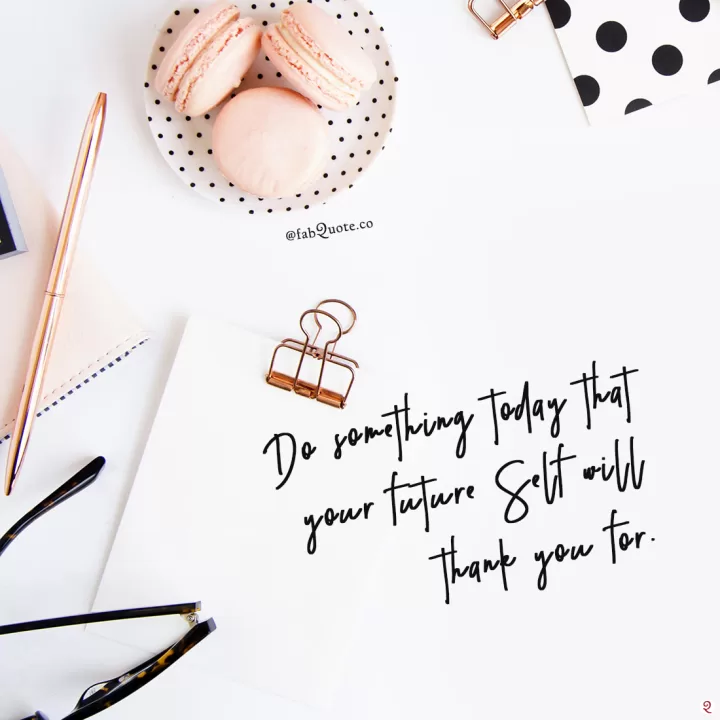 @fabQuote.co
Do something today that
your future Self will
thank you for.